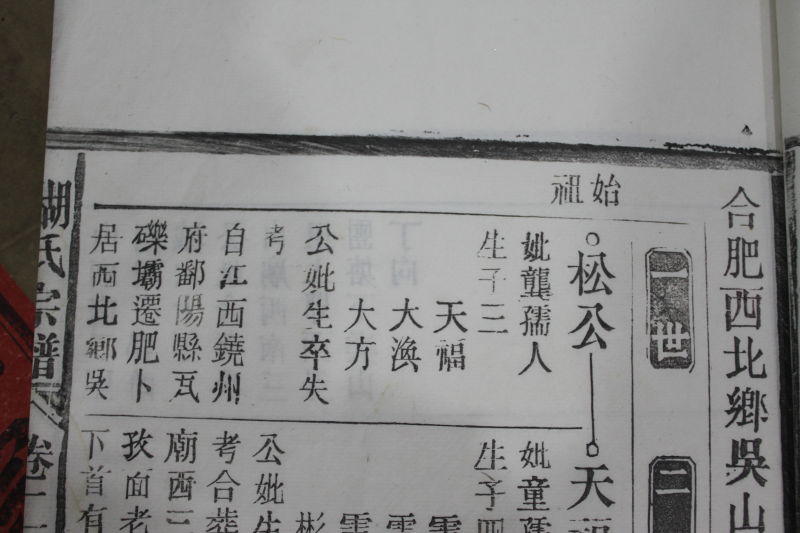 合肥西北鄉吳山
一世
二
始祖
松公
天福
妣龔孺人
生子三
天福
大渙
大方
公妣生卒失
考
自江西饒州
府鄱陽縣瓦
礫壩遷肥卜
居西北鄉吳
妣童孺
生子四
公妣生
考合葬
廟西三
孜面老
下首有
胡氏宗譜
卷二